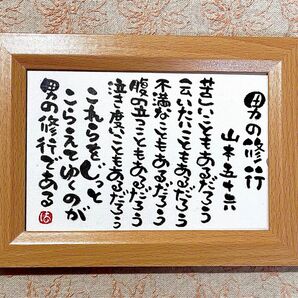 男の修行
山本五十六
苦しいこともあるだろう
云いたいこともあるだろう
不満なこともあるだろう
腹の立つこともあるだろう
泣き度いこともあるだろう
これらをじっと
こらえてゆくのが
男の修行である